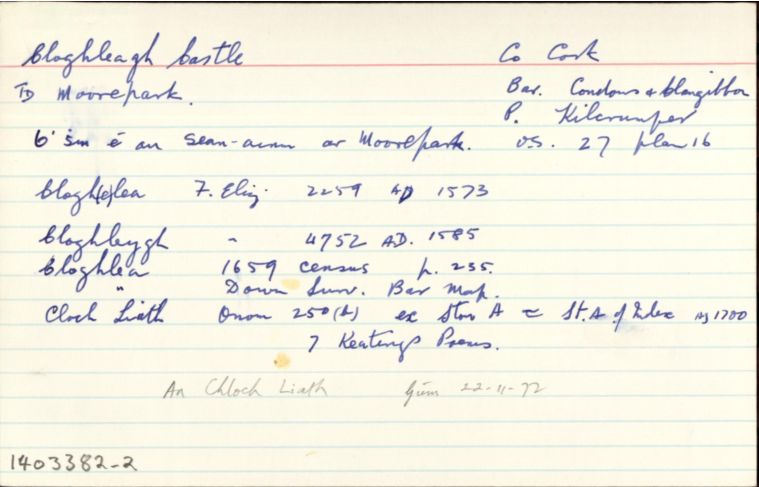 Cloghleagh Castle Co Cork
TD Moorepark. Bar. Condons & Clangibbon
P. Kilcrumper
b' sin é an sean-ainm ar Moorepark. O.S. 27 plan 16
Clogh(e)lea F. Eliz. 2259 AD 1573
Cloghleygh " 4752 AD. 1585
Cloghlea 1659 census p. 235.
" Down Surv. Bar Map.
Cloch Liath Onom 250(b) ex Stow A = St. A of Index AD 1700
7 Keatings Poems.
An Chloch Liath 22-11-72
1403382-2